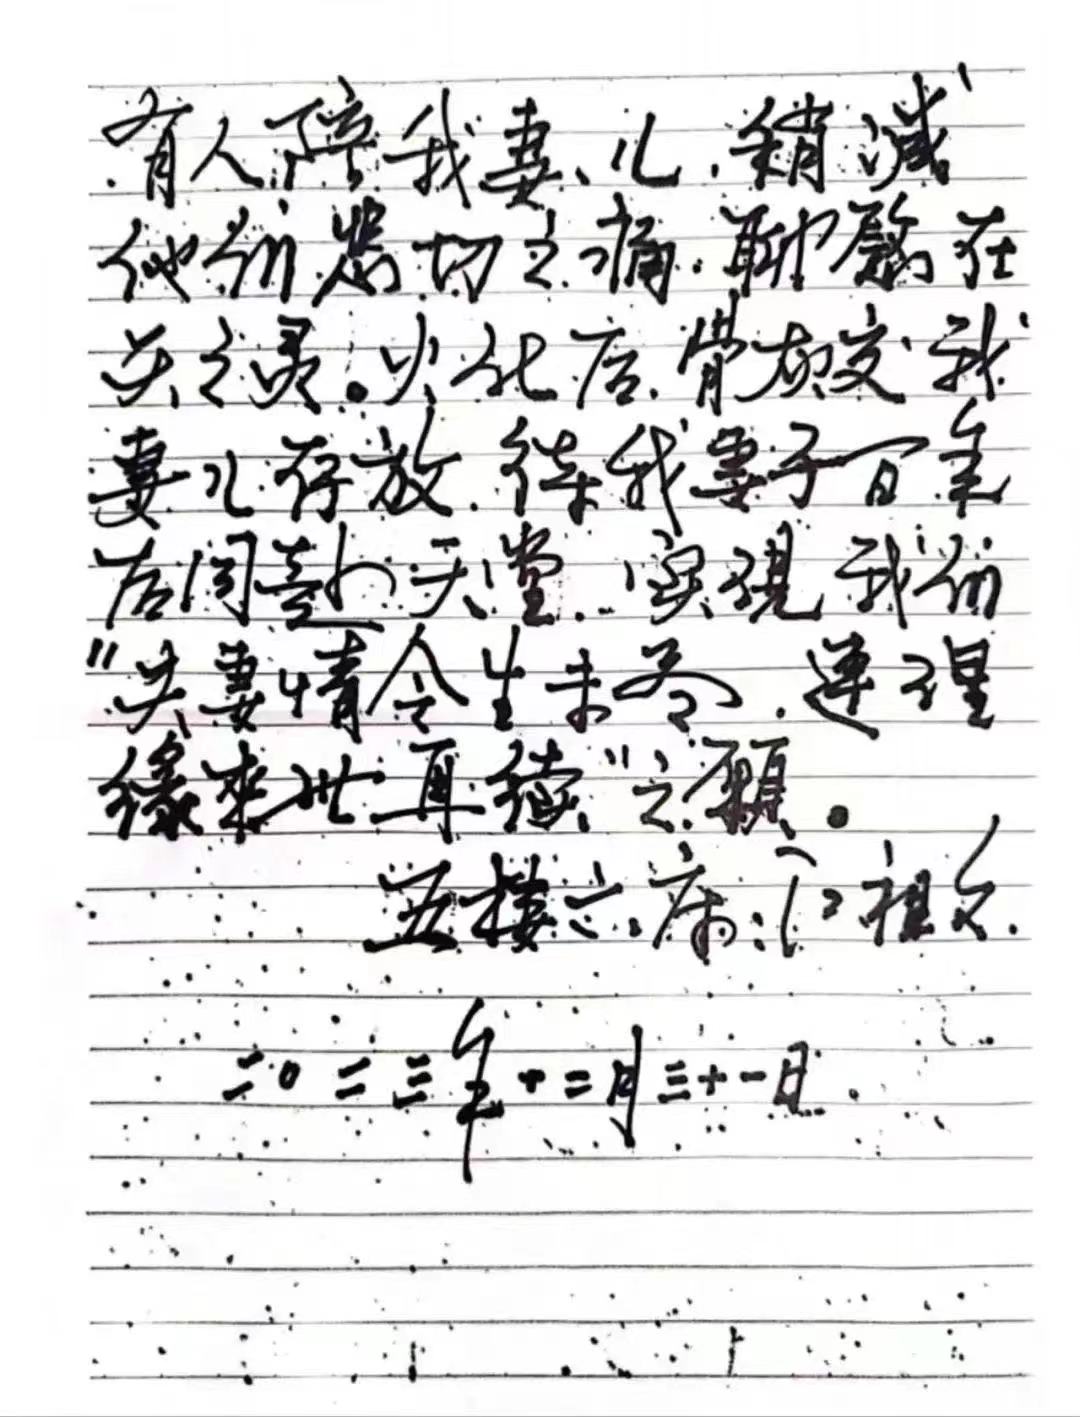 有人陪我妻、儿，稍减
他们悲切之痛，聊慰在
天之灵。火化后，骨灰交我
妻儿存放，待我妻子百年
后同赴天堂，实现我们
"夫妻情今生未尽，连理
缘来世再续"之愿。
五楼六床：
二〇二三年十二月三十一日